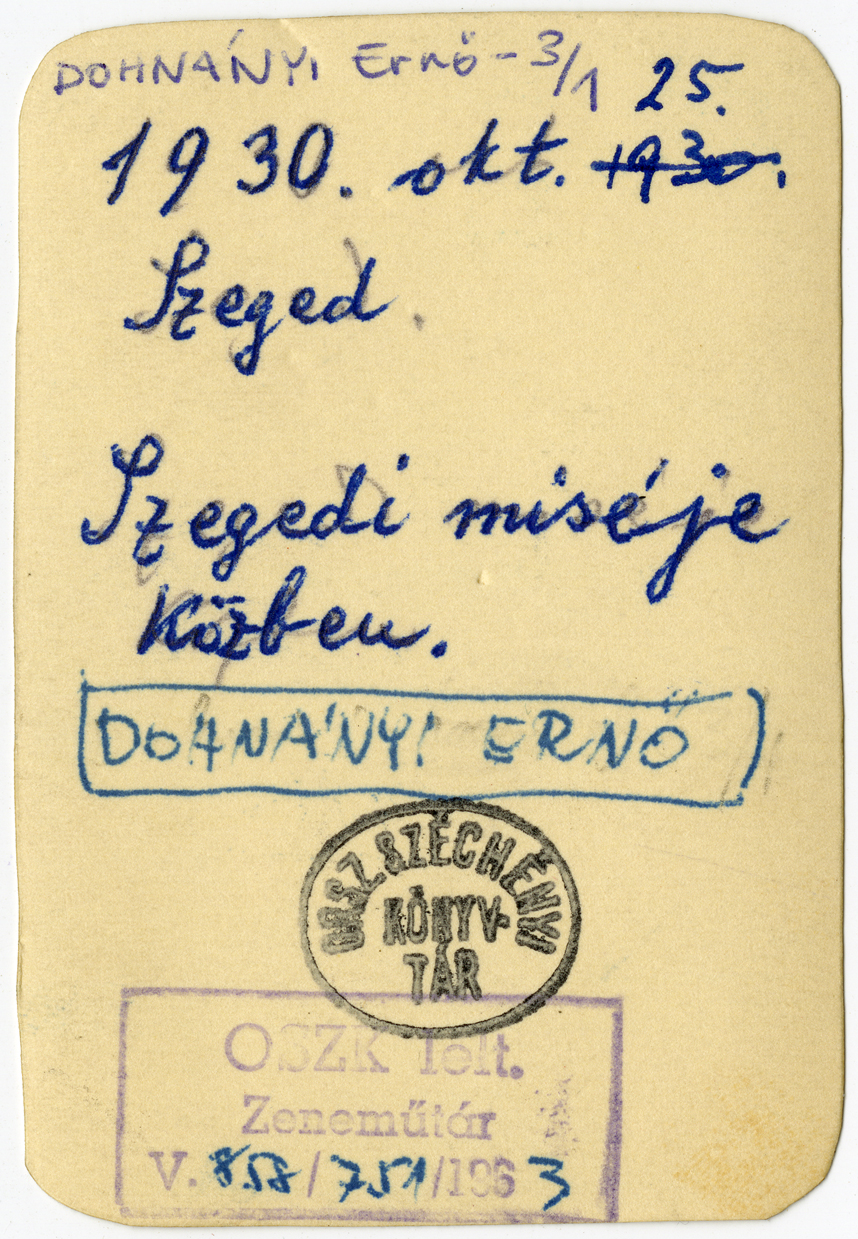 DOHNÁNYI Ernő - 3/1
25.
1930. okt. 1930.
Szeged.
Szegedi miséje
közben.
DOHNÁNYI ERNŐ)
ORSZ. SZÉCHÉNYI
KÖNYV-
TÁR
OSZK lelt.
Zeneműtár
V. 858/751/1963